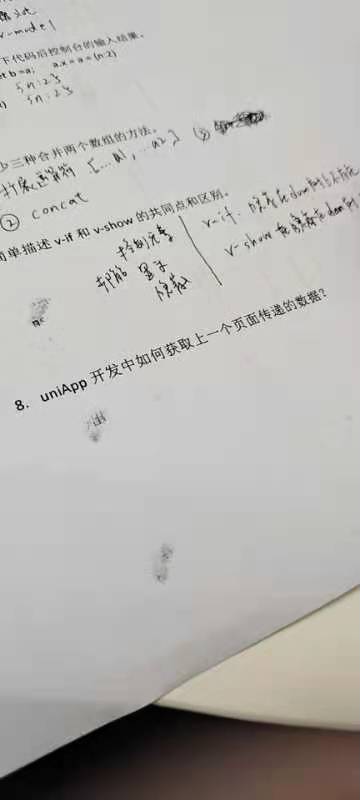 v-model
下代码后控制台的输入结果。
et b=a; a.x=a={n:2}
{n:2}
{n:2}
少三种合并两个数组的方法。
扩展运算符 [...a1, ...a2] ③
② concat
简单描述 v-if 和 v-show 的共同点和区别。
都能 控制元素 显示 隐藏
v-if.
v-show
8. uniApp 开发中如何获取上一个页面传递的数据?